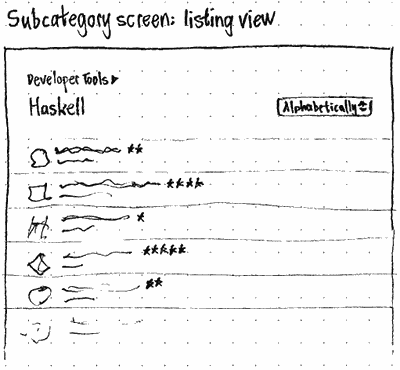 Subcategory screen: listing view
Developer Tools ▸
Haskell
Alphabetically
**
****
*
*****
**